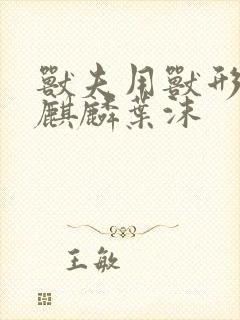 獸夫用獸形
麒麟葉沫
王敏